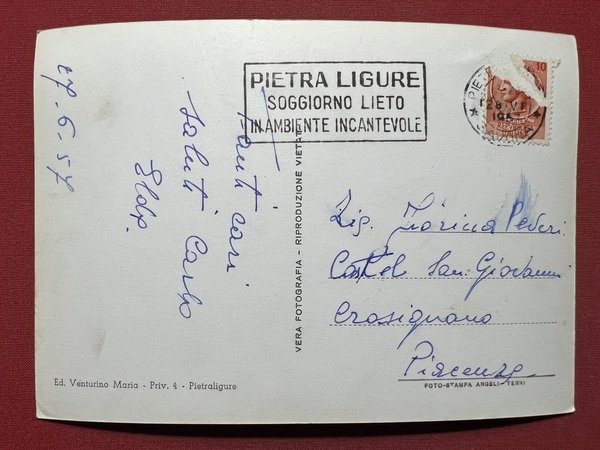 27.6.57
Tanti cari
saluti Carlo
PIETRA LIGURE
SOGGIORNO LIETO
IN AMBIENTE INCANTEVOLE
10
28. VI
VERA FOTOGRAFIA - RIPRODUZIONE VIETATA
Sig.
Castel San Giovanni
Piacenza
FOTO-STAMPA ANGELI-TERNI
Ed. Venturino Maria - Priv. 4 - Pietraligure